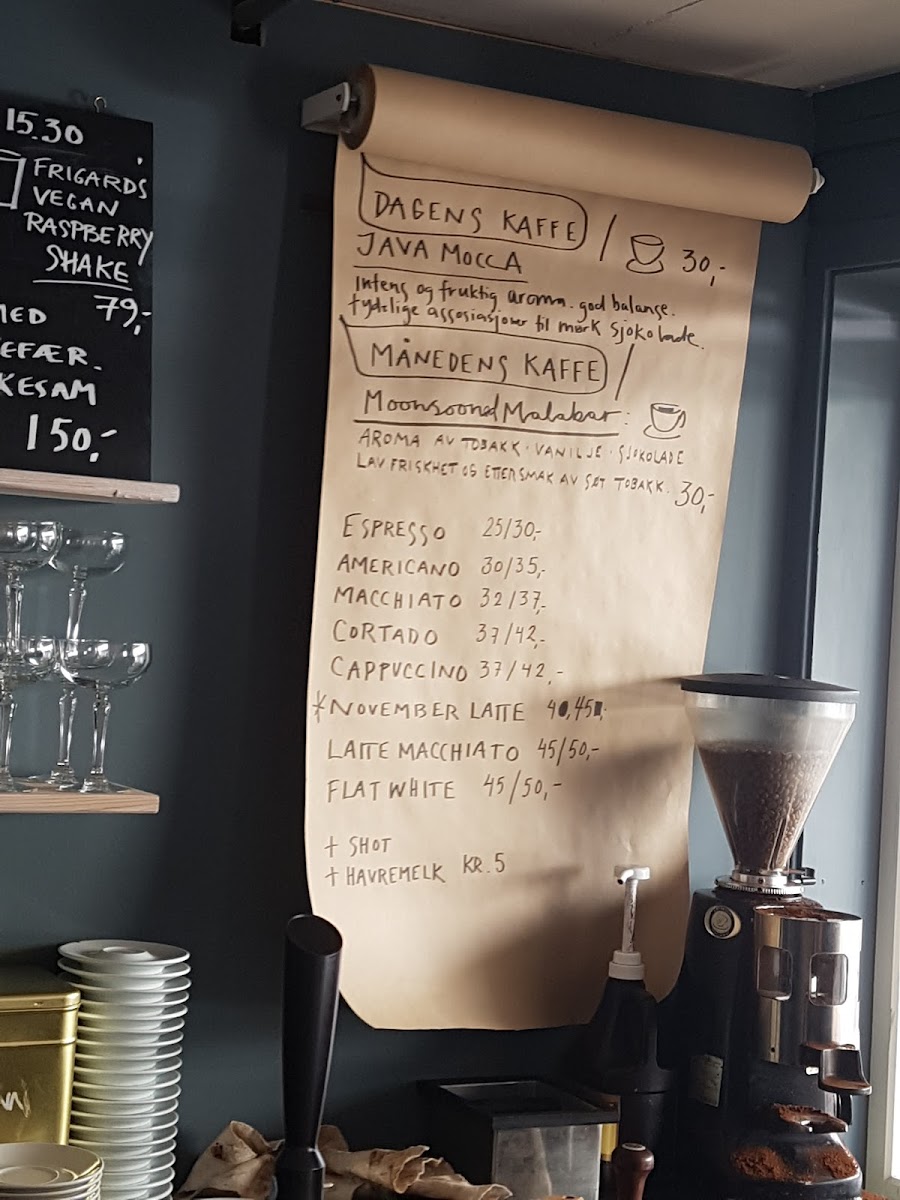 15.30
FRIGARDS
VEGAN
RASPBERRY
SHAKE
79,-
MED
EFÆR.
KESAM
150,-
DAGENS KAFFE / 30,-
JAVA MOCCA
Intens og fruktig aroma. god balanse.
tydelige assosiasjoner til mørk sjokolade.
MÅNEDENS KAFFE /
Moonsooned Malabar:
AROMA AV TOBAKK · VANILJE · SJOKOLADE
LAV FRISKHET OG ETTERSMAK AV SØT TOBAKK. 30,-
ESPRESSO 25/30,-
AMERICANO 30/35,-
MACCHIATO 32/37,-
CORTADO 37/42,-
CAPPUCCINO 37/42,-
*NOVEMBER LATTE
LATTE MACCHIATO 45/50,-
FLAT WHITE 45/50,-
+ SHOT
+ HAVREMELK KR. 5